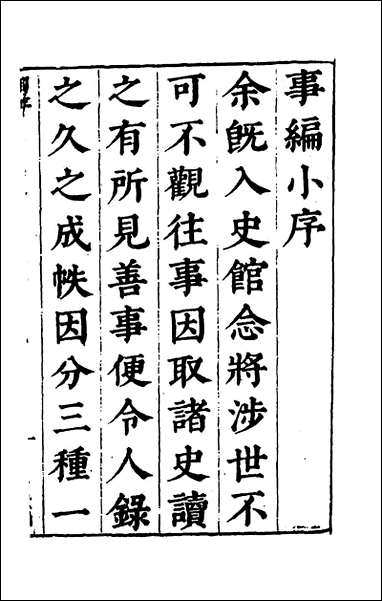 事編小序
余既入史館念將涉世不
可不觀往事因取諸史讀
之有所見善事便令人錄
之久之成帙因分三種一